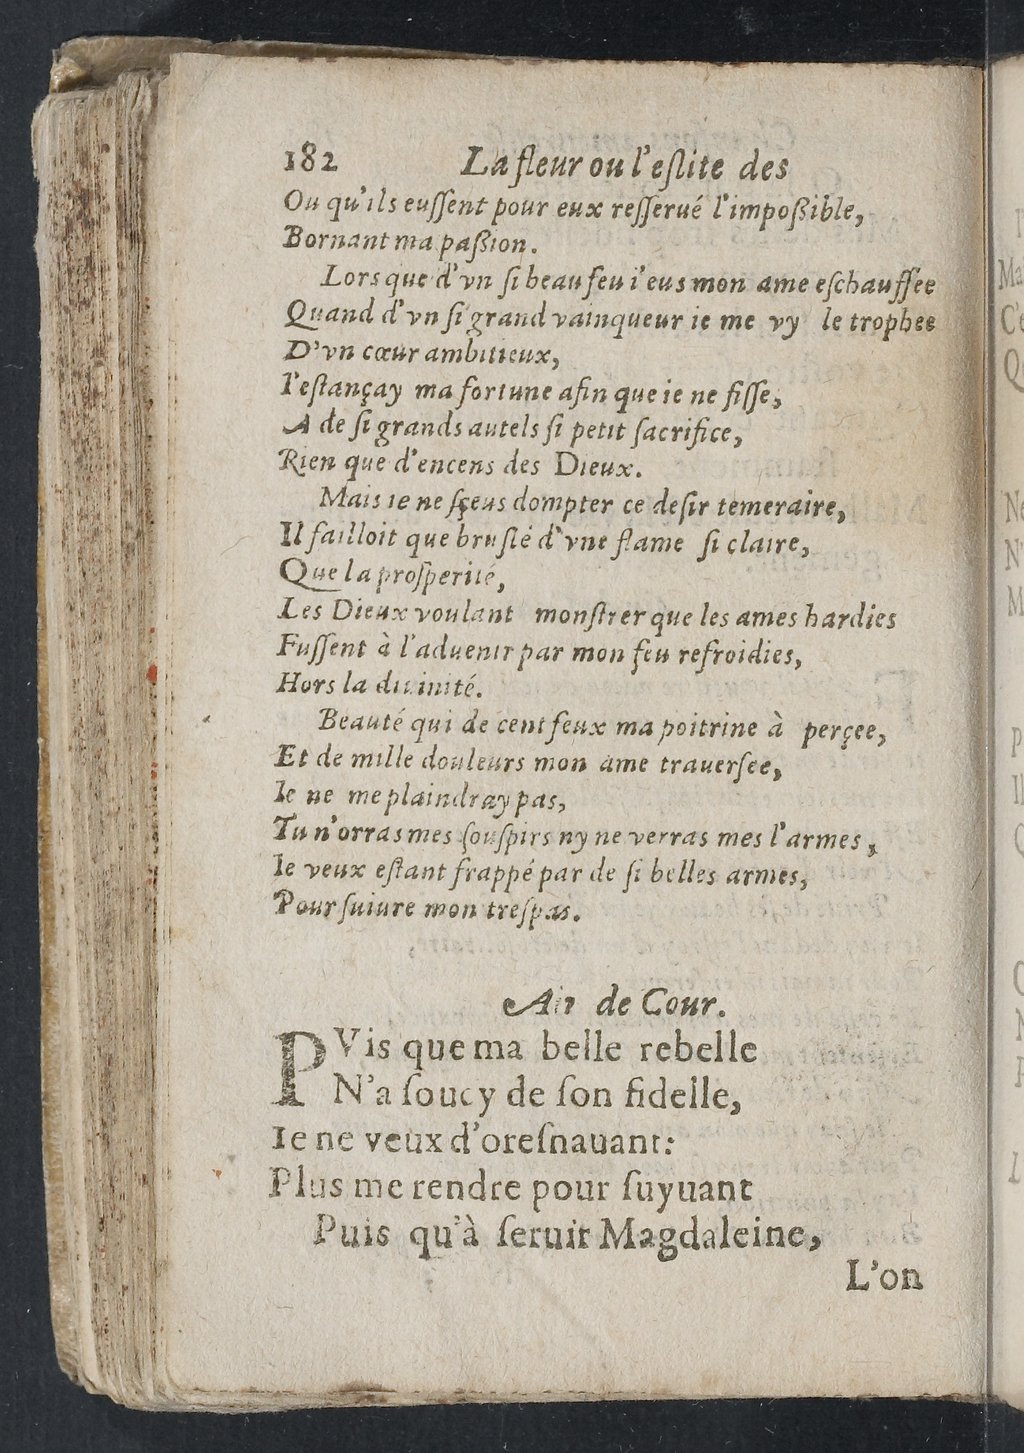 182 La fleur ou l'eslite des
Ou qu'ils eussent pour eux resserué l'impoßible,
Bornant ma paßion.
Lors que d'vn si beau feu i'eus mon ame eschauffée
Quand d'vn si grand vainqueur ie me vy le trophee
D'vn cœur ambitieux,
I'estançay ma fortune afin que ie ne fisse,
A de si grands autels si petit sacrifice,
Rien que d'encens des Dieux.
Mais ie ne sçeus dompter ce desir temeraire,
Il failloit que bruslé d'vne flame si claire,
Que la prosperité,
Les Dieux voulant monstrer que les ames hardies
Fussent à l'aduenir par mon feu refroidies,
Hors la diuinité.
Beauté qui de cent feux ma poitrine à perçee,
Et de mille douleurs mon ame trauersee,
Ie ne me plaindray pas,
Tu n'orras mes souspirs ny ne verras mes l'armes,
Ie veux estant frappé par de si belles armes,
Pour suiure mon trespas.
Air de Cour.
PVis que ma belle rebelle
N'a soucy de son fidelle,
Ie ne veux d'oresnauant:
Plus me rendre pour suyuant
Puis qu'à seruir Magdaleine,
L'on